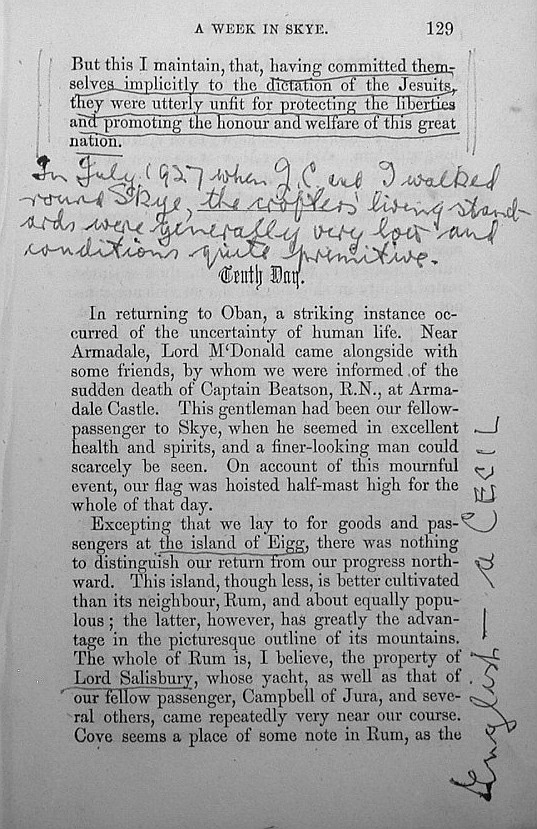 A WEEK IN SKYE. 129
But this I maintain, that, having committed them-
selves implicitly to the dictation of the Jesuits,
they were utterly unfit for protecting the liberties
and promoting the honour and welfare of this great
nation.
In July 1927 when J.C. and I walked
round Skye, the crofters' living stand-
ards were generally very low and
conditions quite primitive.
Tenth Day.
In returning to Oban, a striking instance oc-
curred of the uncertainty of human life. Near
Armadale, Lord M'Donald came alongside with
some friends, by whom we were informed of the
sudden death of Captain Beatson, R.N., at Arma-
dale Castle. This gentleman had been our fellow-
passenger to Skye, when he seemed in excellent
health and spirits, and a finer-looking man could
scarcely be seen. On account of this mournful
event, our flag was hoisted half-mast high for the
whole of that day.
Excepting that we lay to for goods and pas-
sengers at the island of Eigg, there was nothing
to distinguish our return from our progress north-
ward. This island, though less, is better cultivated
than its neighbour, Rum, and about equally popu-
lous; the latter, however, has greatly the advan-
tage in the picturesque outline of its mountains.
The whole of Rum is, I believe, the property of
Lord Salisbury, whose yacht, as well as that of
our fellow passenger, Campbell of Jura, and seve-
ral others, came repeatedly very near our course.
Cove seems a place of some note in Rum, as the
English — a CECIL